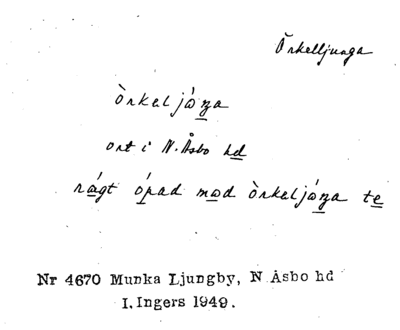 Örkelljunga
òrkeljóŋa
ort i N. Åsbo hd
rägt ópad mod òrkeljóŋa te
Nr 4670 Munka Ljungby, N Åsbo hd
I. Ingers 1949.